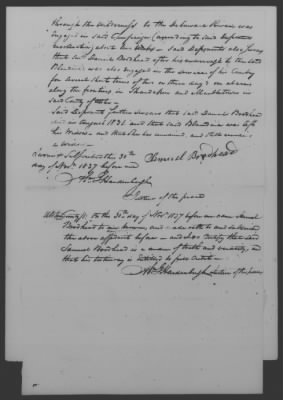 through the wilderness to the Delaware River was
engaged in said Campaign according to said deponents
recollection about two weeks - Said Deponent also says
that said Daniel Brodhead after his marriage to the said
Blandina was also engaged in the service of his Country
for several short terms of two or three days on alarms
along the frontiers in Shandaken and Marbletown in
said County of Ulster -
Said Deponent further swears that said Daniel Brodhead
died in August 1831 and that said Blandina was left
his widow - and that she has remained, and still is
a widow -
Sworn & Subscribed this 30th
day of Novr 1837 before me
Samuel Brodhead
Justice of the peace
Ulster County ss. On the 30th day of Novr 1837 before me came Samuel
Brodhead to me known, and made oath to and subscribed
the above affidavit before me and I do Certify that said
Samuel Brodhead is a man of truth and veracity, and
that his testimony is entitled to full credit -
Hardenbergh Justice of the peace